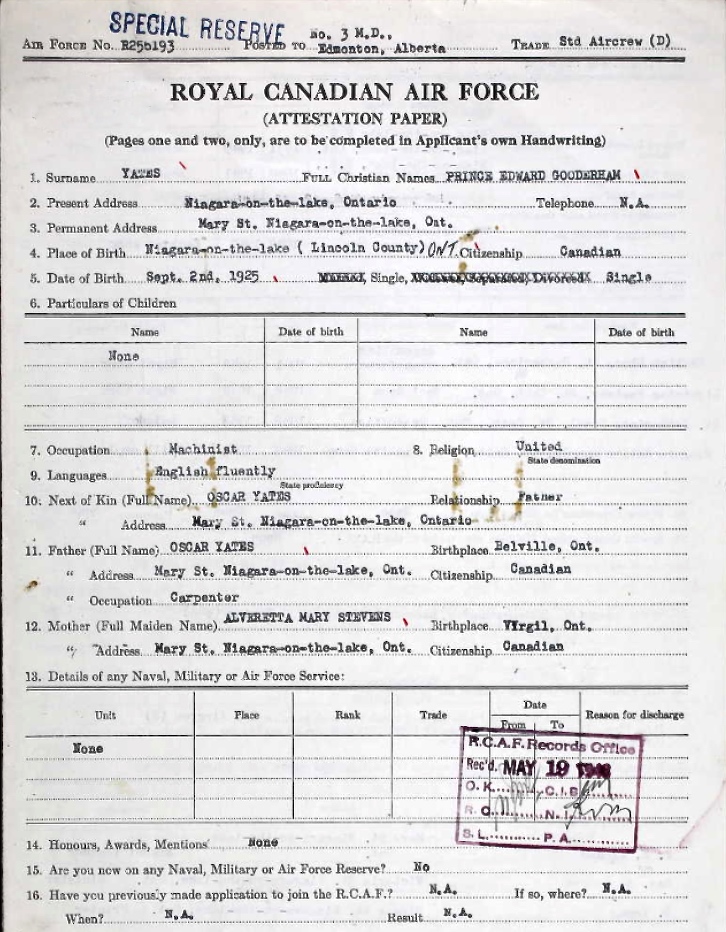 SPECIAL RESERVE
AIR FORCE No. R256193 POSTED TO No. 3 M.D., Edmonton, Alberta TRADE Std Aircrew (D)
ROYAL CANADIAN AIR FORCE
(ATTESTATION PAPER)
(Pages one and two, only, are to be completed in Applicant's own Handwriting)
1. Surname YATES FULL Christian Names PRINCE EDWARD GOODERHAM
2. Present Address Niagara-on-the-lake, Ontario Telephone N.A.
3. Permanent Address Mary St. Niagara-on-the-lake, Ont.
4. Place of Birth Niagara-on-the-lake ( Lincoln County) ONT. Citizenship Canadian
5. Date of Birth Sept. 2nd, 1925 Single, Divorced Single
6. Particulars of Children
Name Date of birth Name Date of birth
None
7. Occupation Machinist 8. Religion United
State denomination
9. Languages English fluently
State proficiency
10. Next of Kin (Full Name) OSCAR YATES Relationship Father
" Address Mary St. Niagara-on-the-lake, Ontario
11. Father (Full Name) OSCAR YATES Birthplace Belville, Ont.
" Address Mary St. Niagara-on-the-lake, Ont. Citizenship Canadian
" Occupation Carpenter
12. Mother (Full Maiden Name) ALVERETTA MARY STEVENS Birthplace Virgil, Ont.
" Address Mary St. Niagara-on-the-lake, Ont. Citizenship Canadian
13. Details of any Naval, Military or Air Force Service:
Unit Place Rank Trade Date Reason for discharge
From To
None
R.C.A.F. Records Office
Rec'd. MAY 19
O.K. C.I.B.
R.O. N.I.
S.L. P.A.
14. Honours, Awards, Mentions None
15. Are you now on any Naval, Military or Air Force Reserve? No
16. Have you previously made application to join the R.C.A.F.? N.A. If so, where? N.A.
When? N.A. Result N.A.